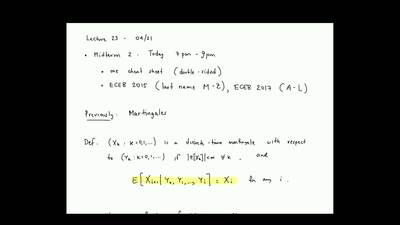 Lecture 23 - 04/21
• Midterm 2 : Today 7 pm - 9 pm
• one cheat sheet (double-sided)
• ECEB 2015 (last name M-Z), ECEB 2017 (A-L)
Previously: Martingales
Def. (Xk : k=0,1,...) is a discrete-time martingale with respect
to (Yk : k=0,1,...) if |E[Xk]|<∞ ∀k, and
E[Xi+1 | Y0, Y1, ..., Yi] = Xi for any i.